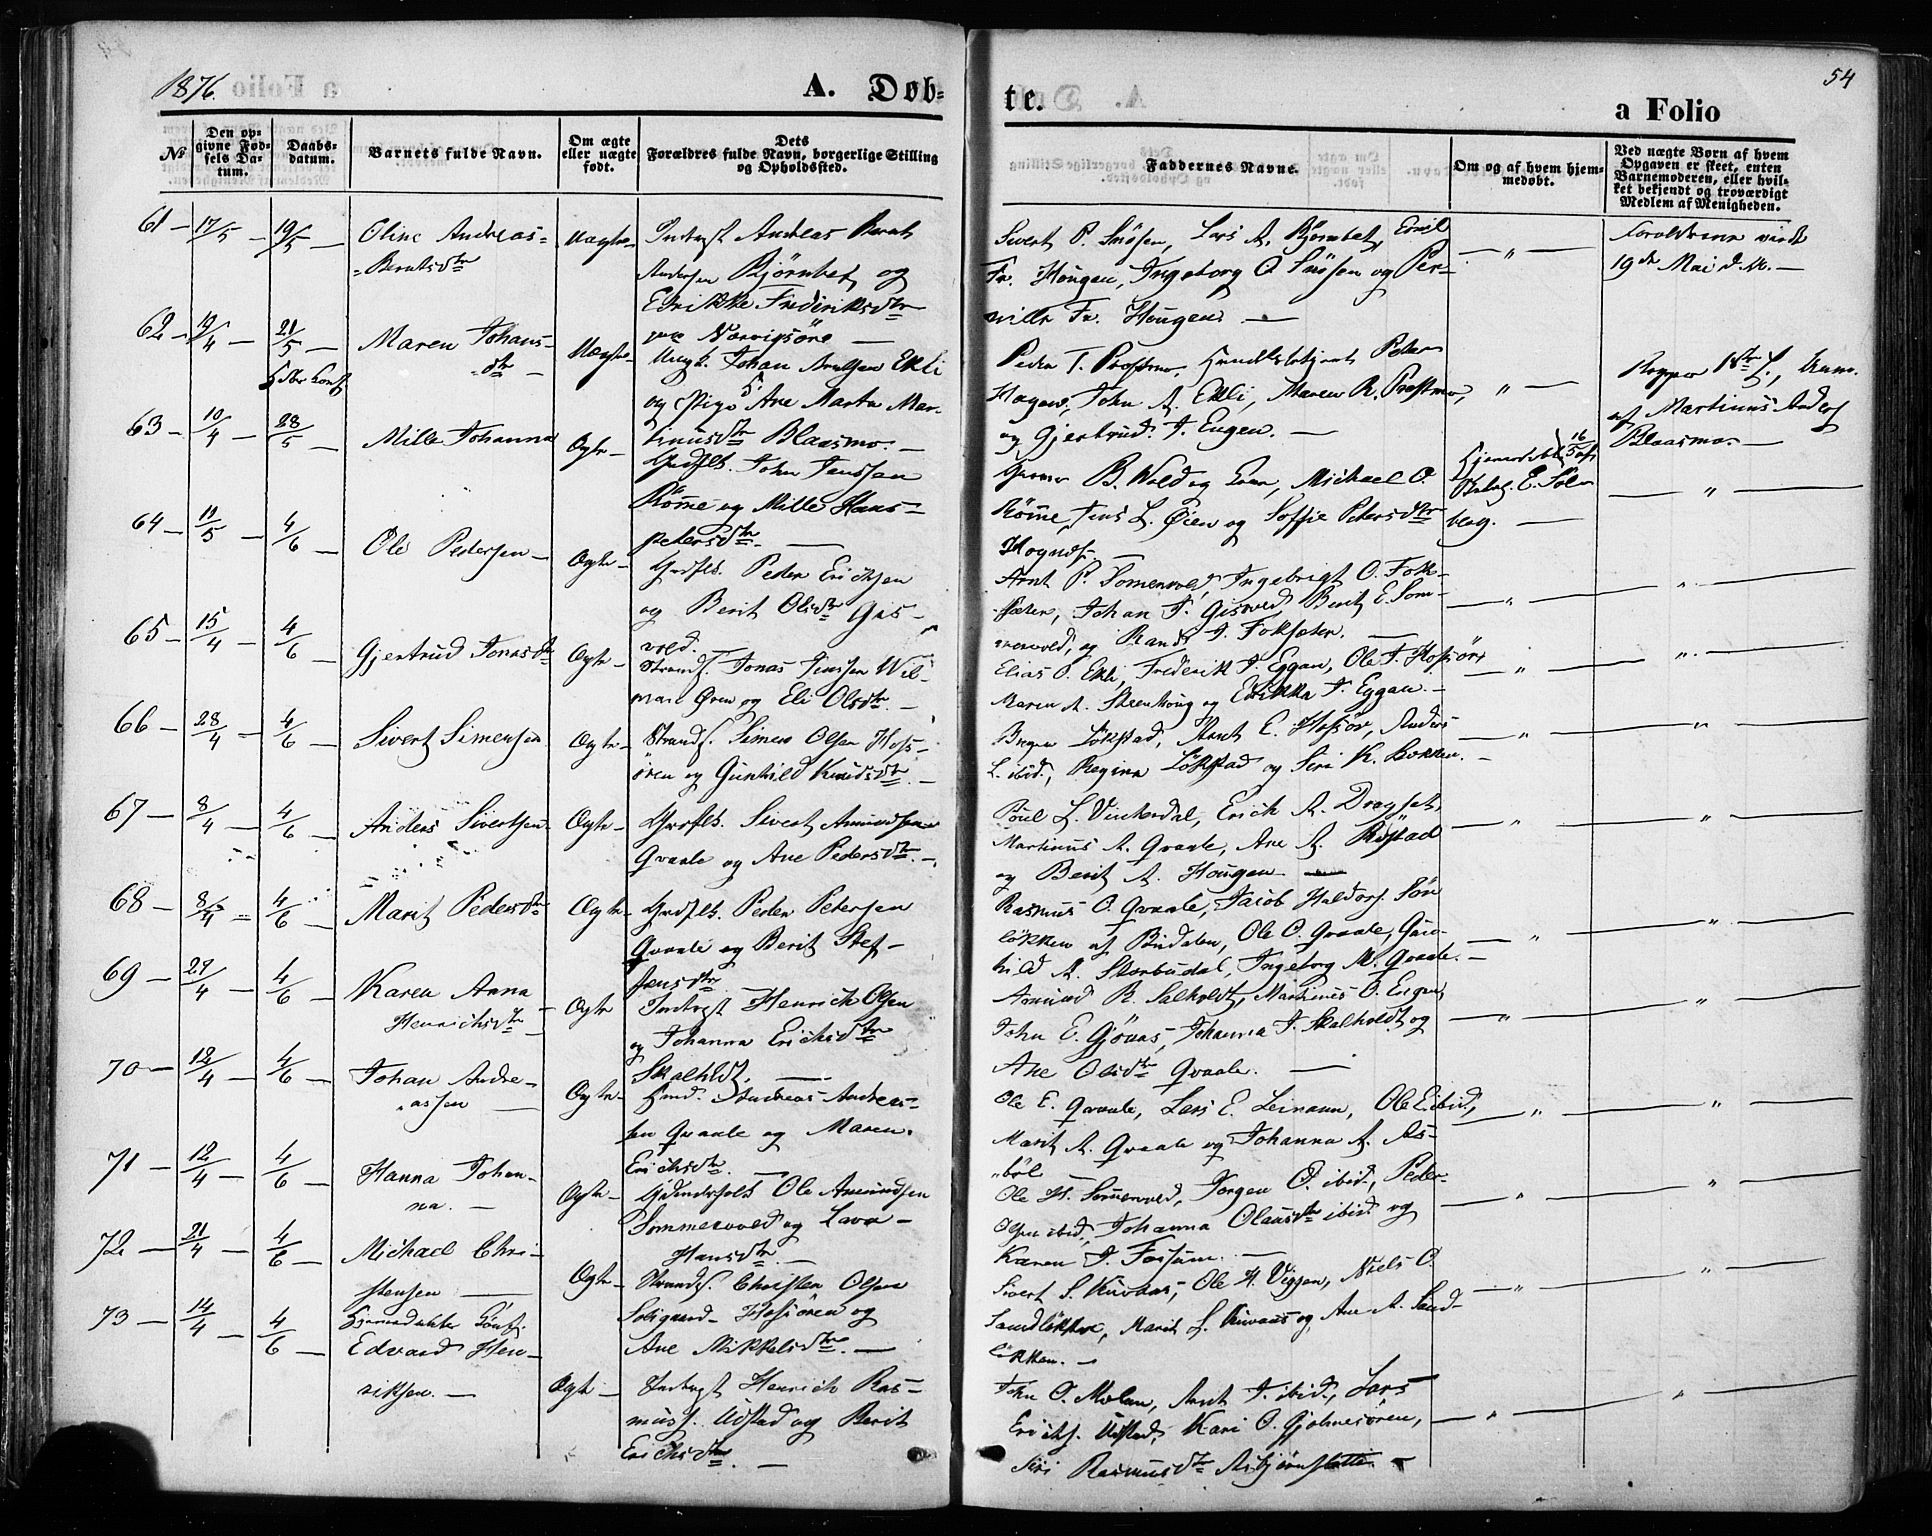 1876.
A. Døb-
te.
a Folio
54
No
Den op-
givne Fød-
sels Da-
tum.
Daabs-
datum.
Barnets fulde Navn.
Om ægte
eller uægte
født.
Dets
Forældres fulde Navn, borgerlige Stilling
og Opholdssted.
Faddernes Navne.
Om og af hvem hjem-
medøbt.
Ved uægte Børn af hvem
Opgaven er skeet, enten
Barnemoderen, eller hvil-
ket bekjendt og troværdigt
Medlem af Menigheden.
61 — 17/5 — 19/5 — Oline Andreas-
Berntsdtr
Uægte
Indrgst Andreas Bernt
Andersen Bjørnbet og
Edrikke Frederiksdtr
Sivert P. Snösen, Lars A. Bjørnbet, Emil
Fr. Hougen, Ingeborg O Snösen og Per-
nille Fr. Hougen. —
Forældrene viede
19de Mai d. A. —
62 — 19/4 — 21/5 — Maren Johans-
dtr —
Uægte
Ungk. Johan Arntsen Ekli
og Pige Ane Marta Mar-
tinusdtr Blaasmo. —
Peder T. Prestmo, Peder
Hagen, John A. Ekli, Maren R. Prestmo,
og Gjertrud J. Engen. —
af Martinus Anders
Blaasmo. —
63 — 10/4 — 28/5 — Mille Johanna
Ægte —
Grdslb. John Jenssen
Römme og Mille Hans-
petersdtr —
B. Wold og Kone, Michael O.
Römme, Jens L. Øien og Soffie Petersdtr
16/5 af
E. Sol-
berg. —
64 — 11/5 — 4/6 — Ole Pedersen —
Ægte —
Grdslb. Peder Erichsen
og Berit Olsdtr Gis-
vold.
Arnt P. Somervold, Ingebrigt O. Fok-
sæter, Johan J. Gisvold, Berit E. Som-
mervold, og Randi J. Foksæter. —
65 — 15/4 — 4/6 — Gjertrud Jonasdtr
Ægte —
Strands. Jonas Jenssen Wil-
mans Øren og Eli Olsdtr —
Elias P. Ekli, Frederik J. Eggan, Ole J. Hofsör,
Maren A. Skeenhoug og Edrikka J. Eggan. —
66 — 28/4 — 4/6 — Sivert Simensen
Ægte —
Strands. Simen Olsen Hofs-
ören og Gunhild Knudsdtr —
Løkstad, Arnt E. Hofsör, Anders
L. ibid., Regina Løkstad og Siri K. Løkken. —
67 — 8/4 — 4/6 — Anders Sivertsen
Ægte —
Grdslb. Sivert Amundsen
Qvaale og Ane Pedersdtr —
Poul L. Vinterdal, Erich A. Dragset,
Martinus A. Qvaale, Ane A. Röstad
og Berit A. Hougen —
68 — 8/4 — 4/6 — Marit Pedersdtr
Ægte
Grdslb. Peder Petersen
Qvaale og Berit Stef-
fensdtr
Rasmus O. Qvaale, Jacob Haldors. Sön
løkken af Budalen, Ole O. Qvaale, Gun-
hild A. Storbudal, Ingeborg M. Qvaale. —
69 — 29/4 — 4/6 — Karen Anna
Henrichsdtr —
Ægte
Indrgst Henrich Olsen
og Johanna Erichsdtr
Skalholdt. —
Amund R. Salholdt, Martinus O. Engen,
John E. Gjönas, Johanna J. Skalholdt og
Ane Olsdtr Qvaale. —
70 — 12/4 — 4/6 — Johan Andre-
assen —
Ægte —
Hmd. Andreas Anders-
sen Qvaale og Maren
Erichsdtr —
Ole E. Qvaale, Lars E. Leimann, Ole E. ibid.,
Marit A. Qvaale og Johanna A. As-
böl —
71 — 12/4 — 4/6 — Hanna Johan-
na. —
Ægte —
Ole Amundsen
Sommervold og Lava
Hansdtr —
Ole H. Somervold, Jörgen O. ibid., Peder
Olsen ibid., Johanna Olausdtr ibid og
Karen J. Forsum. —
72 — 21/4 — 4/6 — Michael Chri-
stensen —
Ægte —
Strands. Christen Olsen
Soligaard Hofsören og
Ane Mikkelsdtr —
Sivert S. Kuvaas, Ole H. Viggen, Niels O.
Sandløkken, Marit L. Kuvaas og Ane A. Sand-
løkken. —
73 — 14/4 — 4/6 —
Edvard Hen-
riksen. —
Ægte —
Indrgst Henrich Ras-
muss. Udstad og Berit
Erichsdtr. —
John O. Molan, Arnt J. ibid., Lars
Erichs. Udstad, Kari O. Gjølmesören,
Siri Rasmusdtr Asbjörnslette —